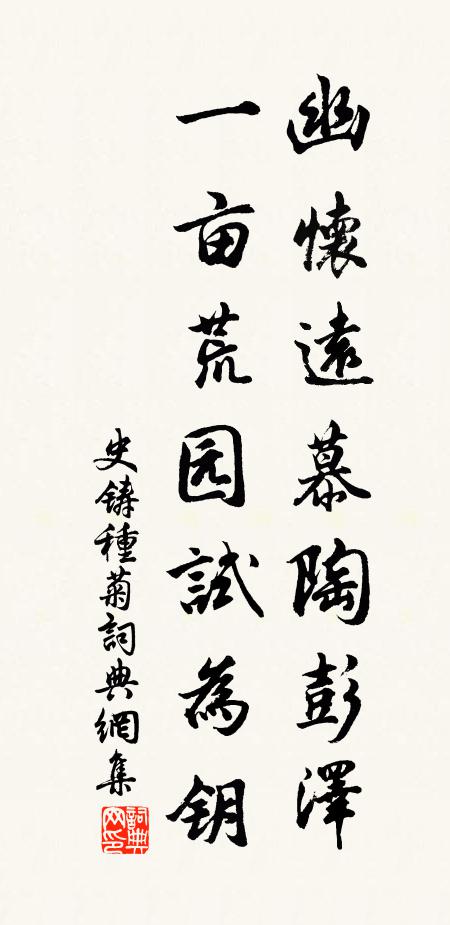 幽懷遠慕陶彭澤
一亩荒园試為钥
史鋳種菊詞典網集
詞典网印